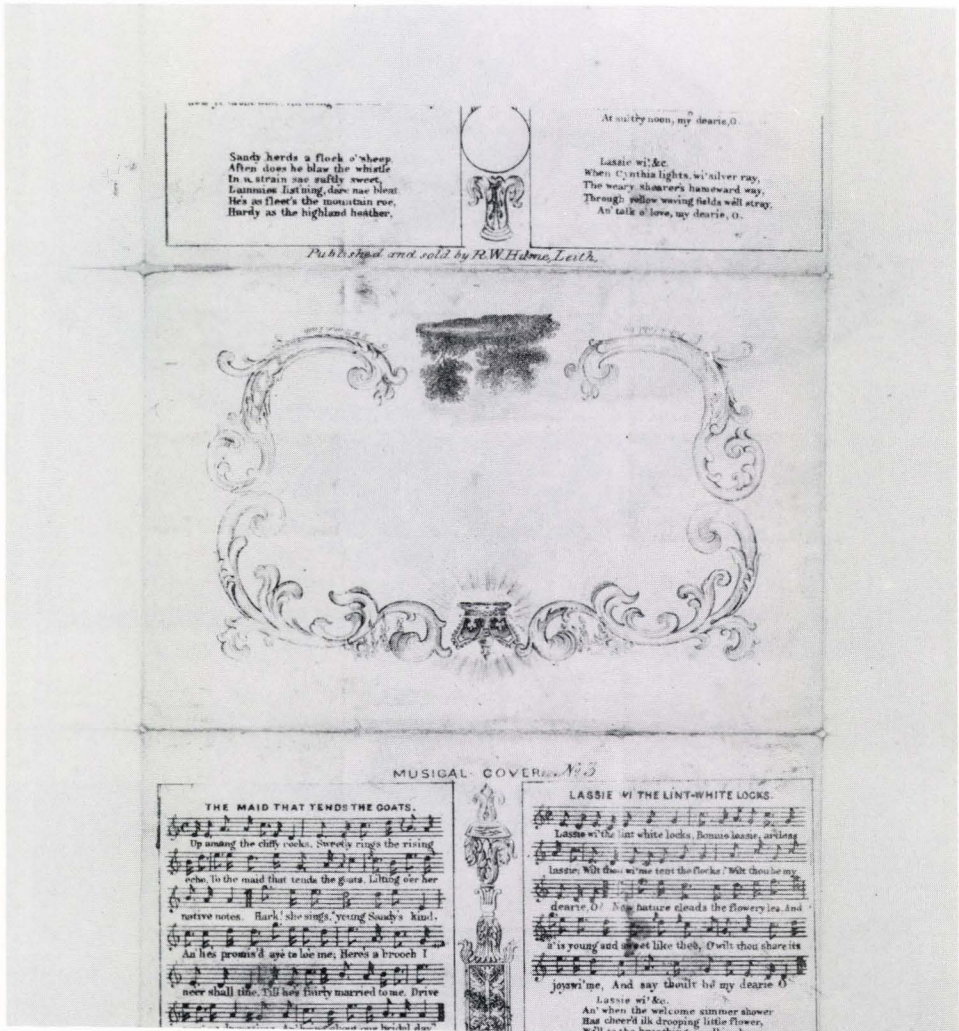 At sultry noon, my dearie, O.
Sandy herds a flock o' sheep
Aften does he blaw the whistle
In a strain sae saftly sweet,
Lammies list'ning, dare nae bleat
He's as fleet's the mountain roe,
Hardy as the highland heather,
Lassie wi' &c.
When Cynthia lights, wi' silver ray,
The weary shearer's hameward way,
Through yellow waving fields we'll stray,
An' talk o' love, my dearie, O.
Published and sold by R.W. Hume, Leith.
MUSICAL COVER No 3
THE MAID THAT TENDS THE GOATS.
Up amang the cliffy rocks, Sweetly rings the rising
echo, To the maid that tends the goats, Lilting o'er her
native notes. Hark! she sings, 'young Sandy's kind,
An he's promis'd aye to loe me; Here's a brooch I
neer shall tine, Till he's fairly married to me. Drive
our bridal day'
LASSIE WI THE LINT-WHITE LOCKS.
Lassie wi' the lint white locks, Bonnie lassie, artless
lassie, Wilt thou wi' me tent the flocks? Wilt thou be my
dearie, O? Now nature cleads the flowery lea, And
a' is young and sweet like thee, O wilt thou share its
joys wi' me, And say thoult be my dearie O
Lassie wi' &c.
An' when the welcome simmer shower
Has cheer'd ilk drooping little flower,